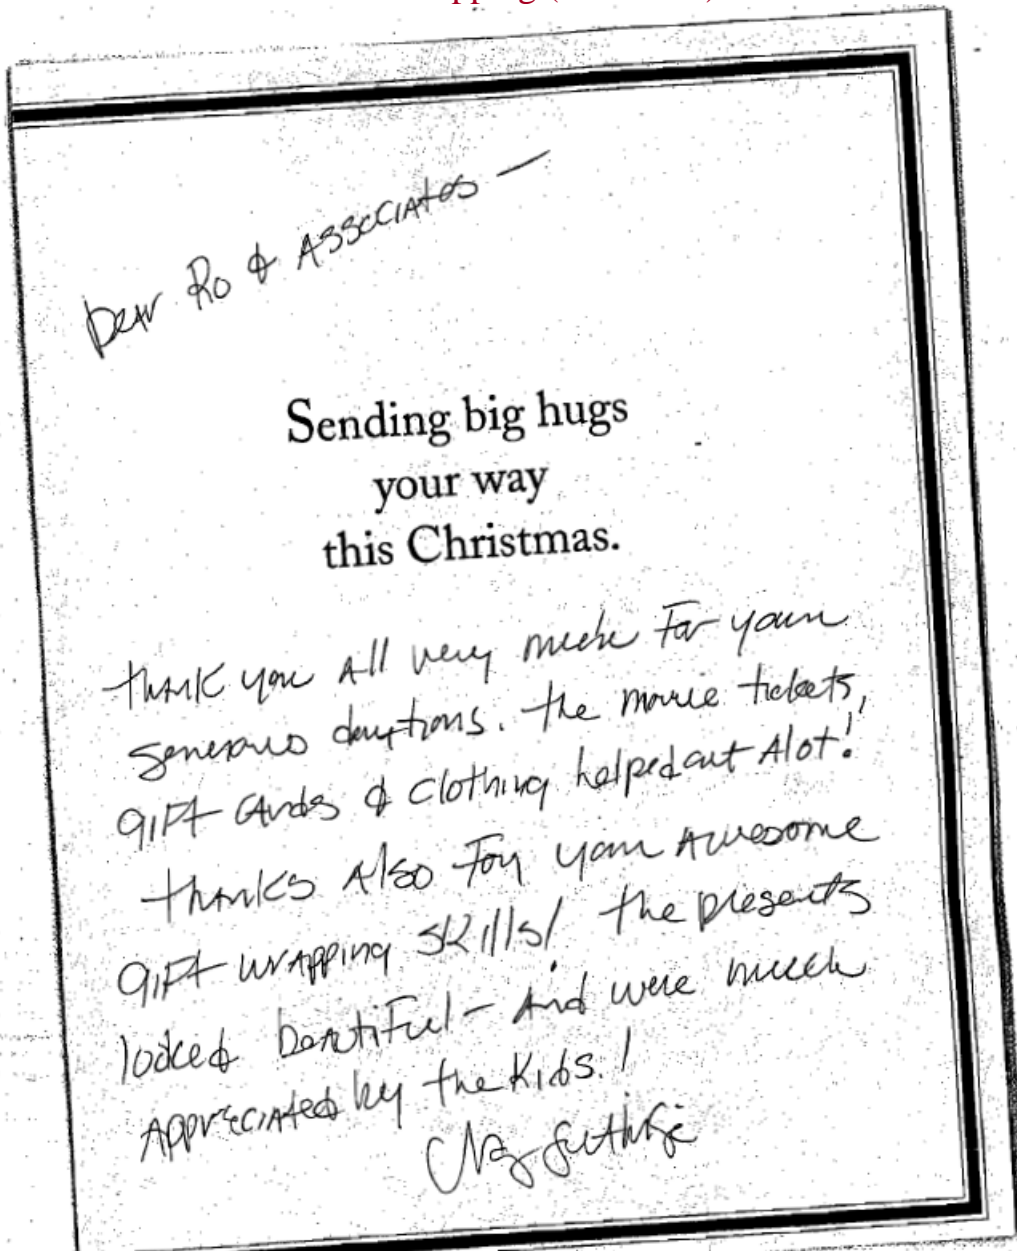 Dear Ro & Associates —
Sending big hugs
your way
this Christmas.
Thank you all very much for your
generous donations. The movie tickets,
gift cards & clothing helped out alot!
Thanks also for your awesome
gift wrapping skills! The presents
looked beautiful - and were much
appreciated by the kids.!
Guthrie